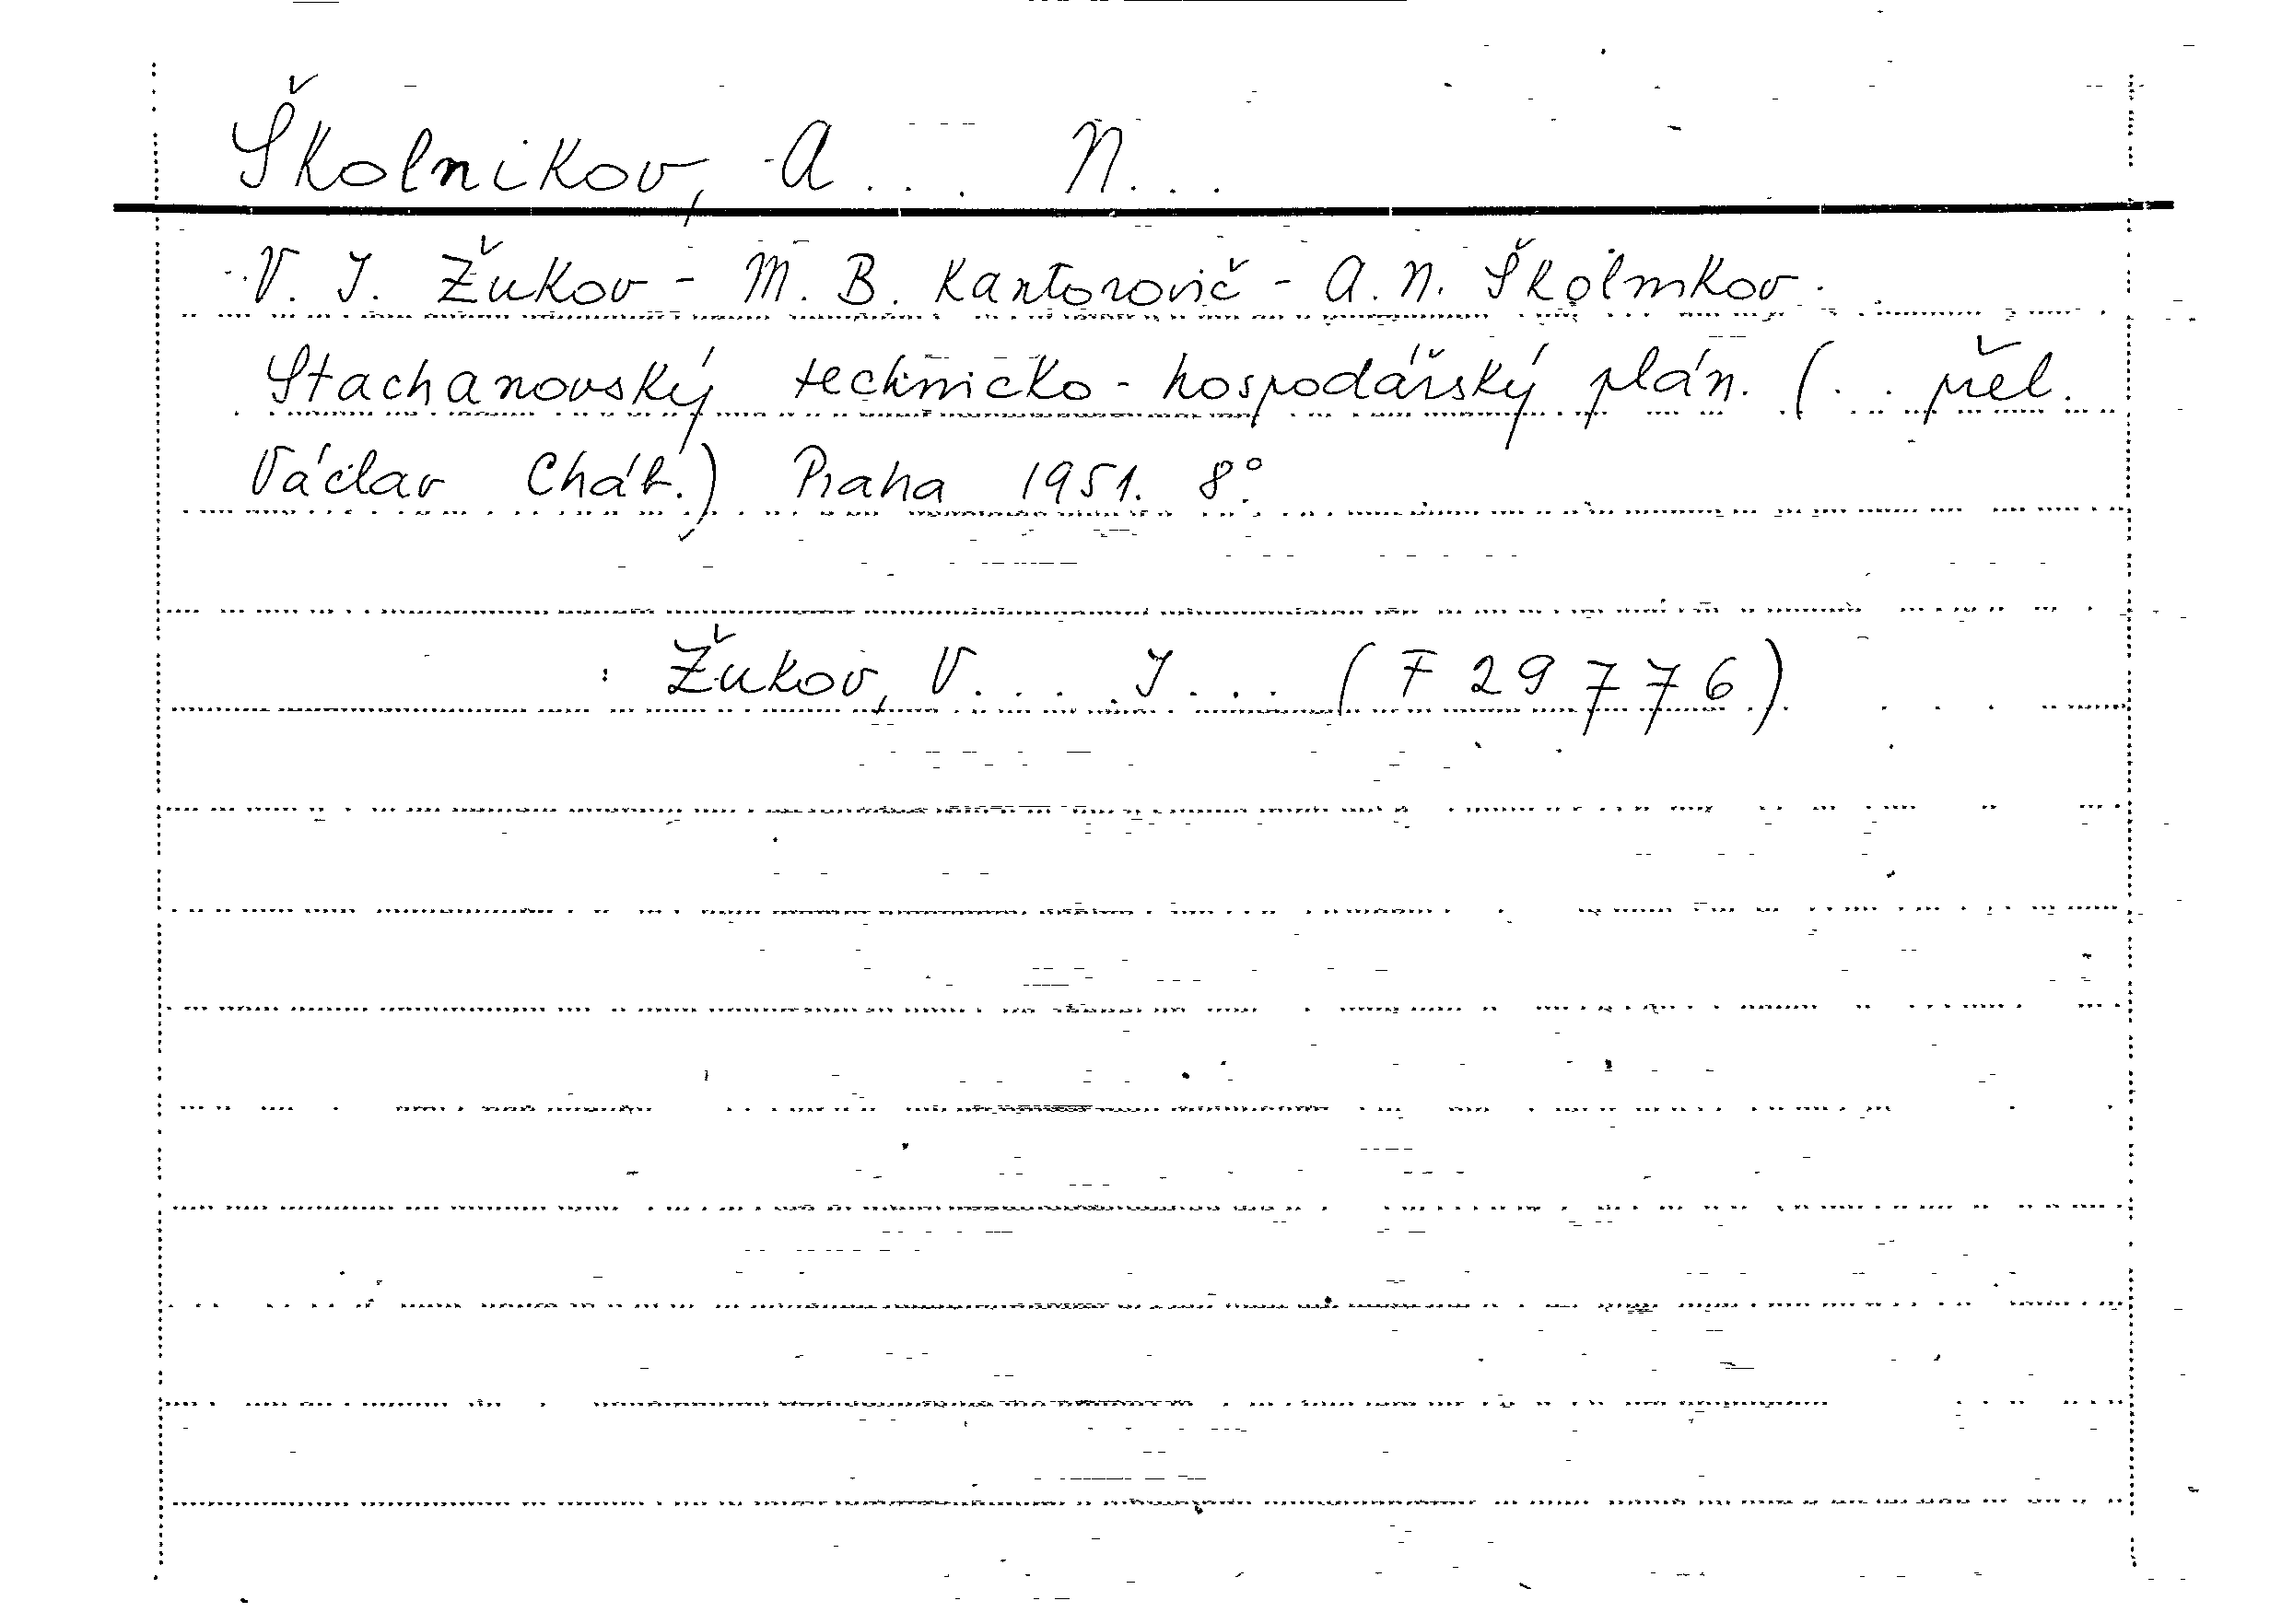 Školnikov, A... N...
V. J. Žukov - M. B. Kantorovič - A. N. Školnikov.
Stachanovský technicko-hospodářský plán. (.. přel.
Václav Cháb.) Praha 1951. 8°.
Žukov, V... J... (F 29776)